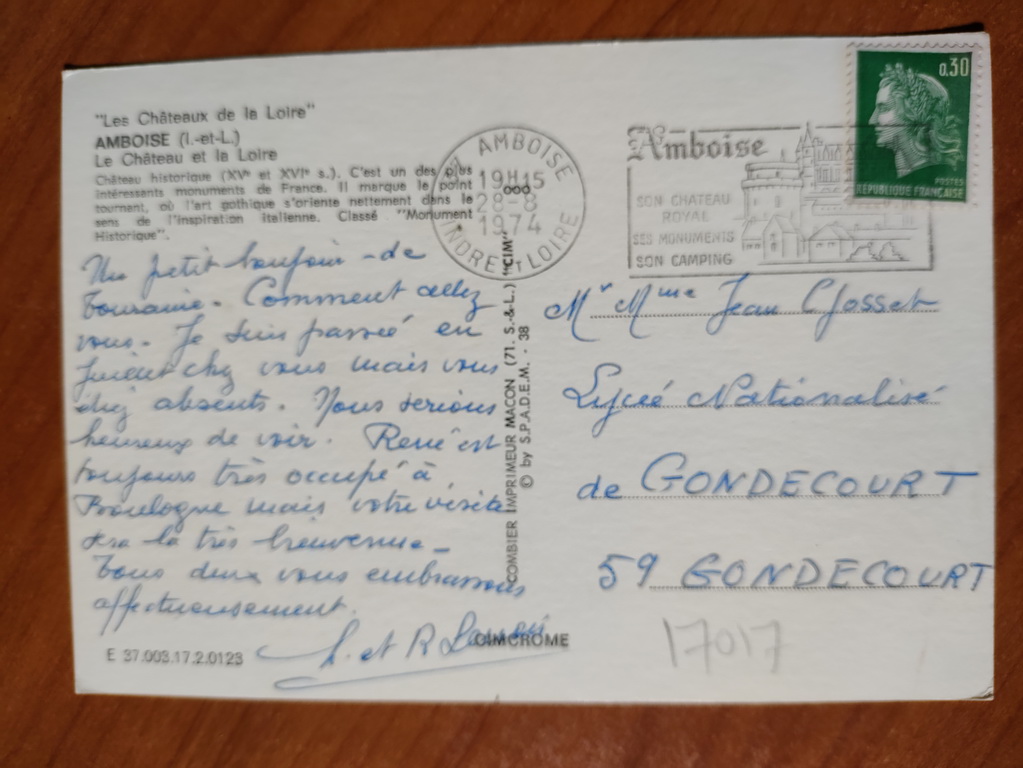 "Les Châteaux de la Loire"
AMBOISE (I.-et-L.)
Le Château et la Loire
Château historique (XVe et XVIe s.). C'est un des plus
intéressants monuments de France. Il marque le point
tournant, où l'art gothique s'oriente nettement dans le
sens de l'inspiration italienne. Classé "Monument
Historique".
Un petit bonjour de
Touraine. Comment allez
vous. Je suis passée en
juillet chez vous mais vous
étiez absents. Nous serions
heureux de voir. René est
toujours très occupé à
Boulogne mais votre visite
sera la très bienvenue.
Tous deux vous embrassons
affectueusement.
et R
E 37.003.17.2.0123
CIMCROME
COMBIER IMPRIMEUR MACON (71. S.-&-L.) "CIM"
© by S.P.A.D.E.M. - 38
37 AMBOISE
19H15
28-8
1974
INDRE ET LOIRE
Amboise
SON CHATEAU
ROYAL
SES MONUMENTS
SON CAMPING
0,30
POSTES
REPUBLIQUE FRANÇAISE
Mr Mme Jean Gosset
Lycée Nationalisé
de GONDECOURT
59 GONDECOURT
17017